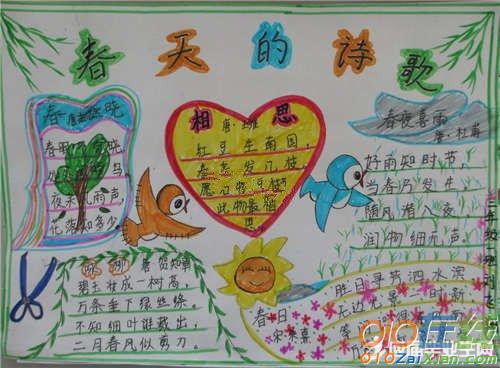 春天的诗歌
春晓
春眠不觉晓
夜来风雨声,
花落知多少。
相思
唐:王维
红豆生南国,
春来发几枝,
愿君
此物最相
思。
春夜喜雨
唐:杜甫
好雨知时节,
当春乃发生。
随风潜入夜,
润物细无声。
咏柳 唐 贺知章
碧玉妆成一树高,
万条垂下绿丝绦,
不知细叶谁裁出,
二月春风似剪刀。
春日
宋朱熹
胜日寻芳泗水滨,
无边光景一时新,
910在线
910ZaiXian.com